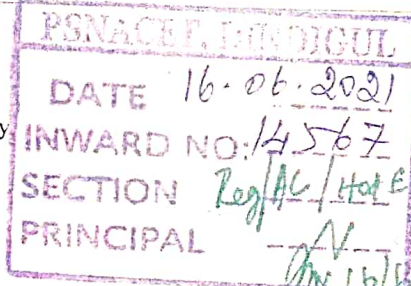 PSNACET, DINDIGUL
DATE 16-06-2021
y
INWARD NO: 14567
SECTION Reg/AC/HoD E
PRINCIPAL